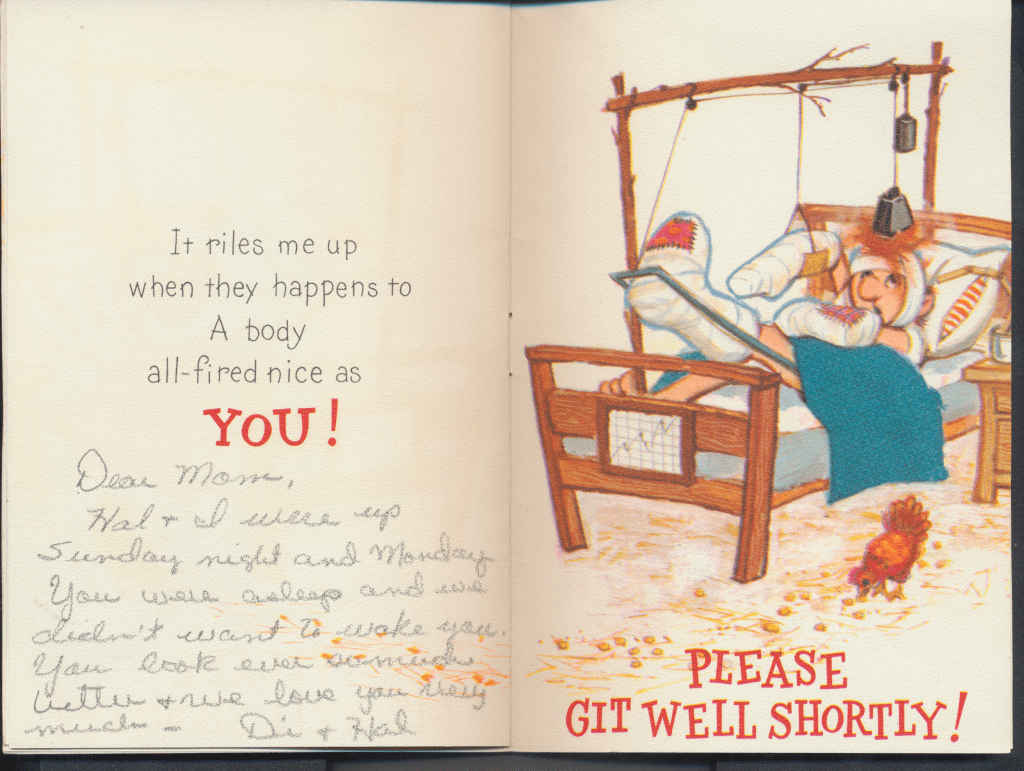 It riles me up
when they happens to
A body
all-fired nice as
YOU!
Dear Mom,
Hal + I were up
Sunday night and Monday
You were asleep and we
didn't want to wake you.
You look ever so much
better + we love you very
much -
Di + Hal
PLEASE
GIT WELL SHORTLY!